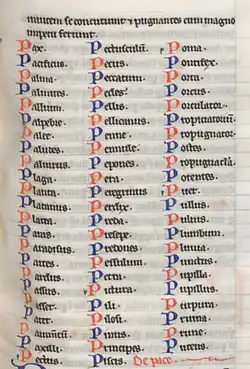 inuicem se concutiunt et pugnantes cum magno
impetu feriunt.
Pax.
Pacificus.
Palma.
Palmites.
Pallium.
Palpebre.
Palee.
Paludes.
Paliurus.
Plaga.
Planta.
Platanus.
Platea.
Panis.
Paradisus.
Partes.
Passus.
Passer.
Pater.
Pauimentū.
Paxilli.
Pectus.
Pectusculū.
Pecus.
Peccatum.
Pedes.
Pellis.
Pellicanus.
Penne.
Pepones.
Pera.
Peregrinus.
Preda.
Presepe.
Predones.
Pessulum.
Petra.
Pictura.
Pili.
Pilosi.
Pinus.
Principes.
Piscis.
Poma.
Pontifex.
Porta.
Porcus.
Propiciatoriū.
Propugnator.
Postes.
Propugnacla.
Potentes.
Puer.
Pullus.
Puluis.
Plumbum.
Pluuia.
Punctus.
Pupilla.
Pupillus.
Purpura.
Pruina.
Prune.
Puteus.
De pace.